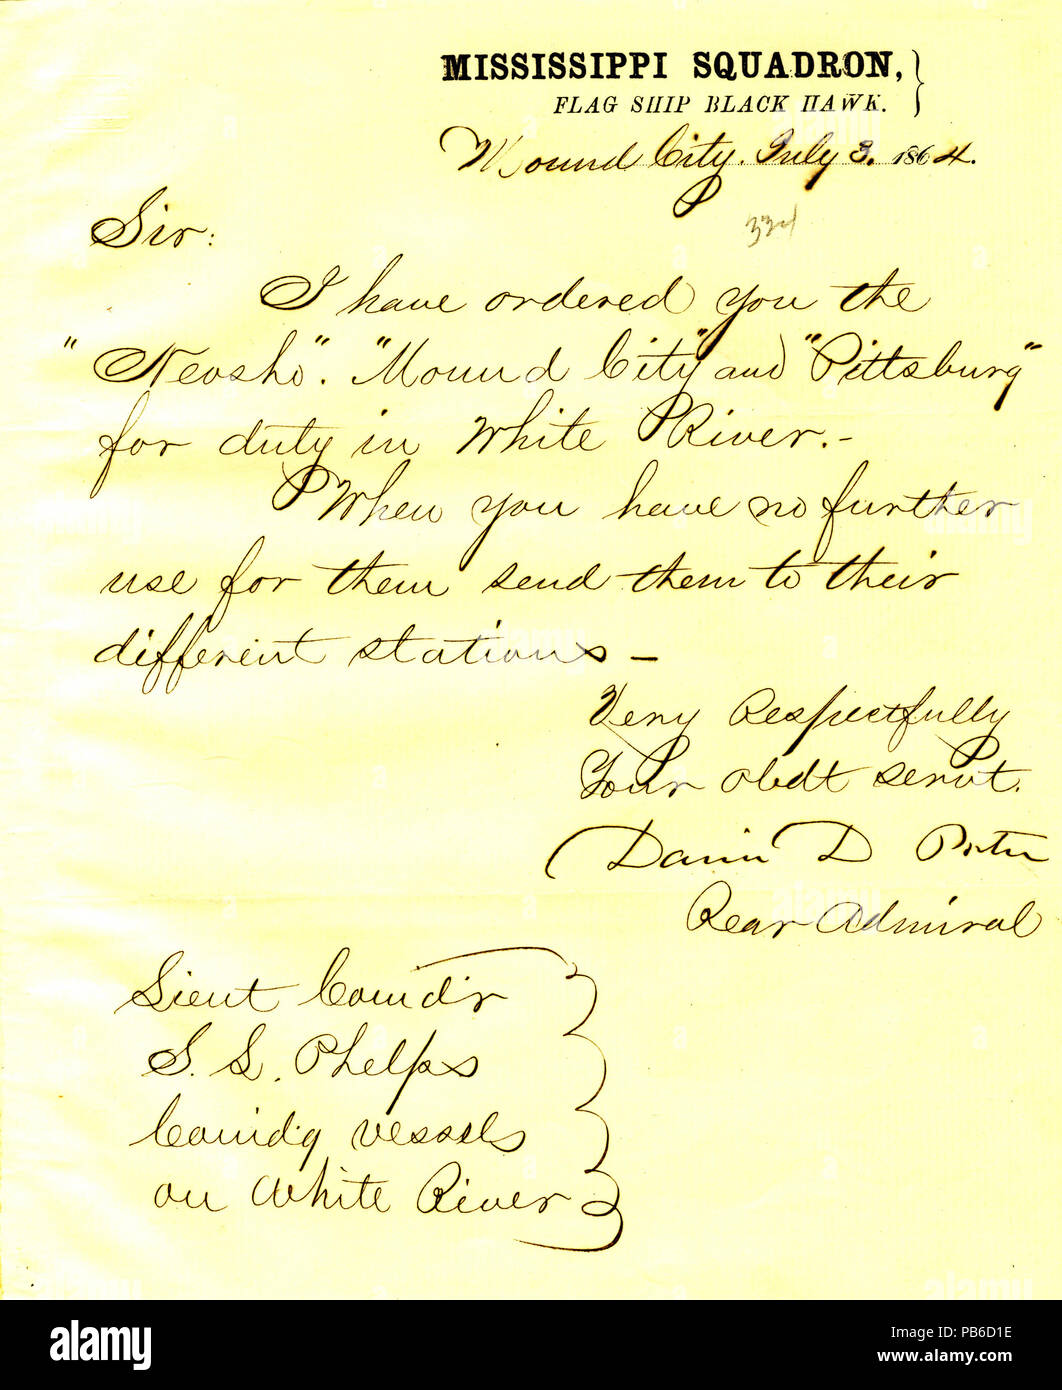 MISSISSIPPI SQUADRON,
FLAG SHIP BLACK HAWK.
Mound City. July 3. 1864.
334
Sir:
I have ordered you the
"Neosho". "Mound City" and "Pittsburg"
for duty in White River.-
When you have no further
use for them send them to their
different stations-
Very Respectfully
Your obdt servt.
David D Porter
Rear Admiral
Lieut Comd'r
S. L. Phelps
Comd'g vessels
on White River
alamy
Image ID: PB6D1E
www.alamy.com